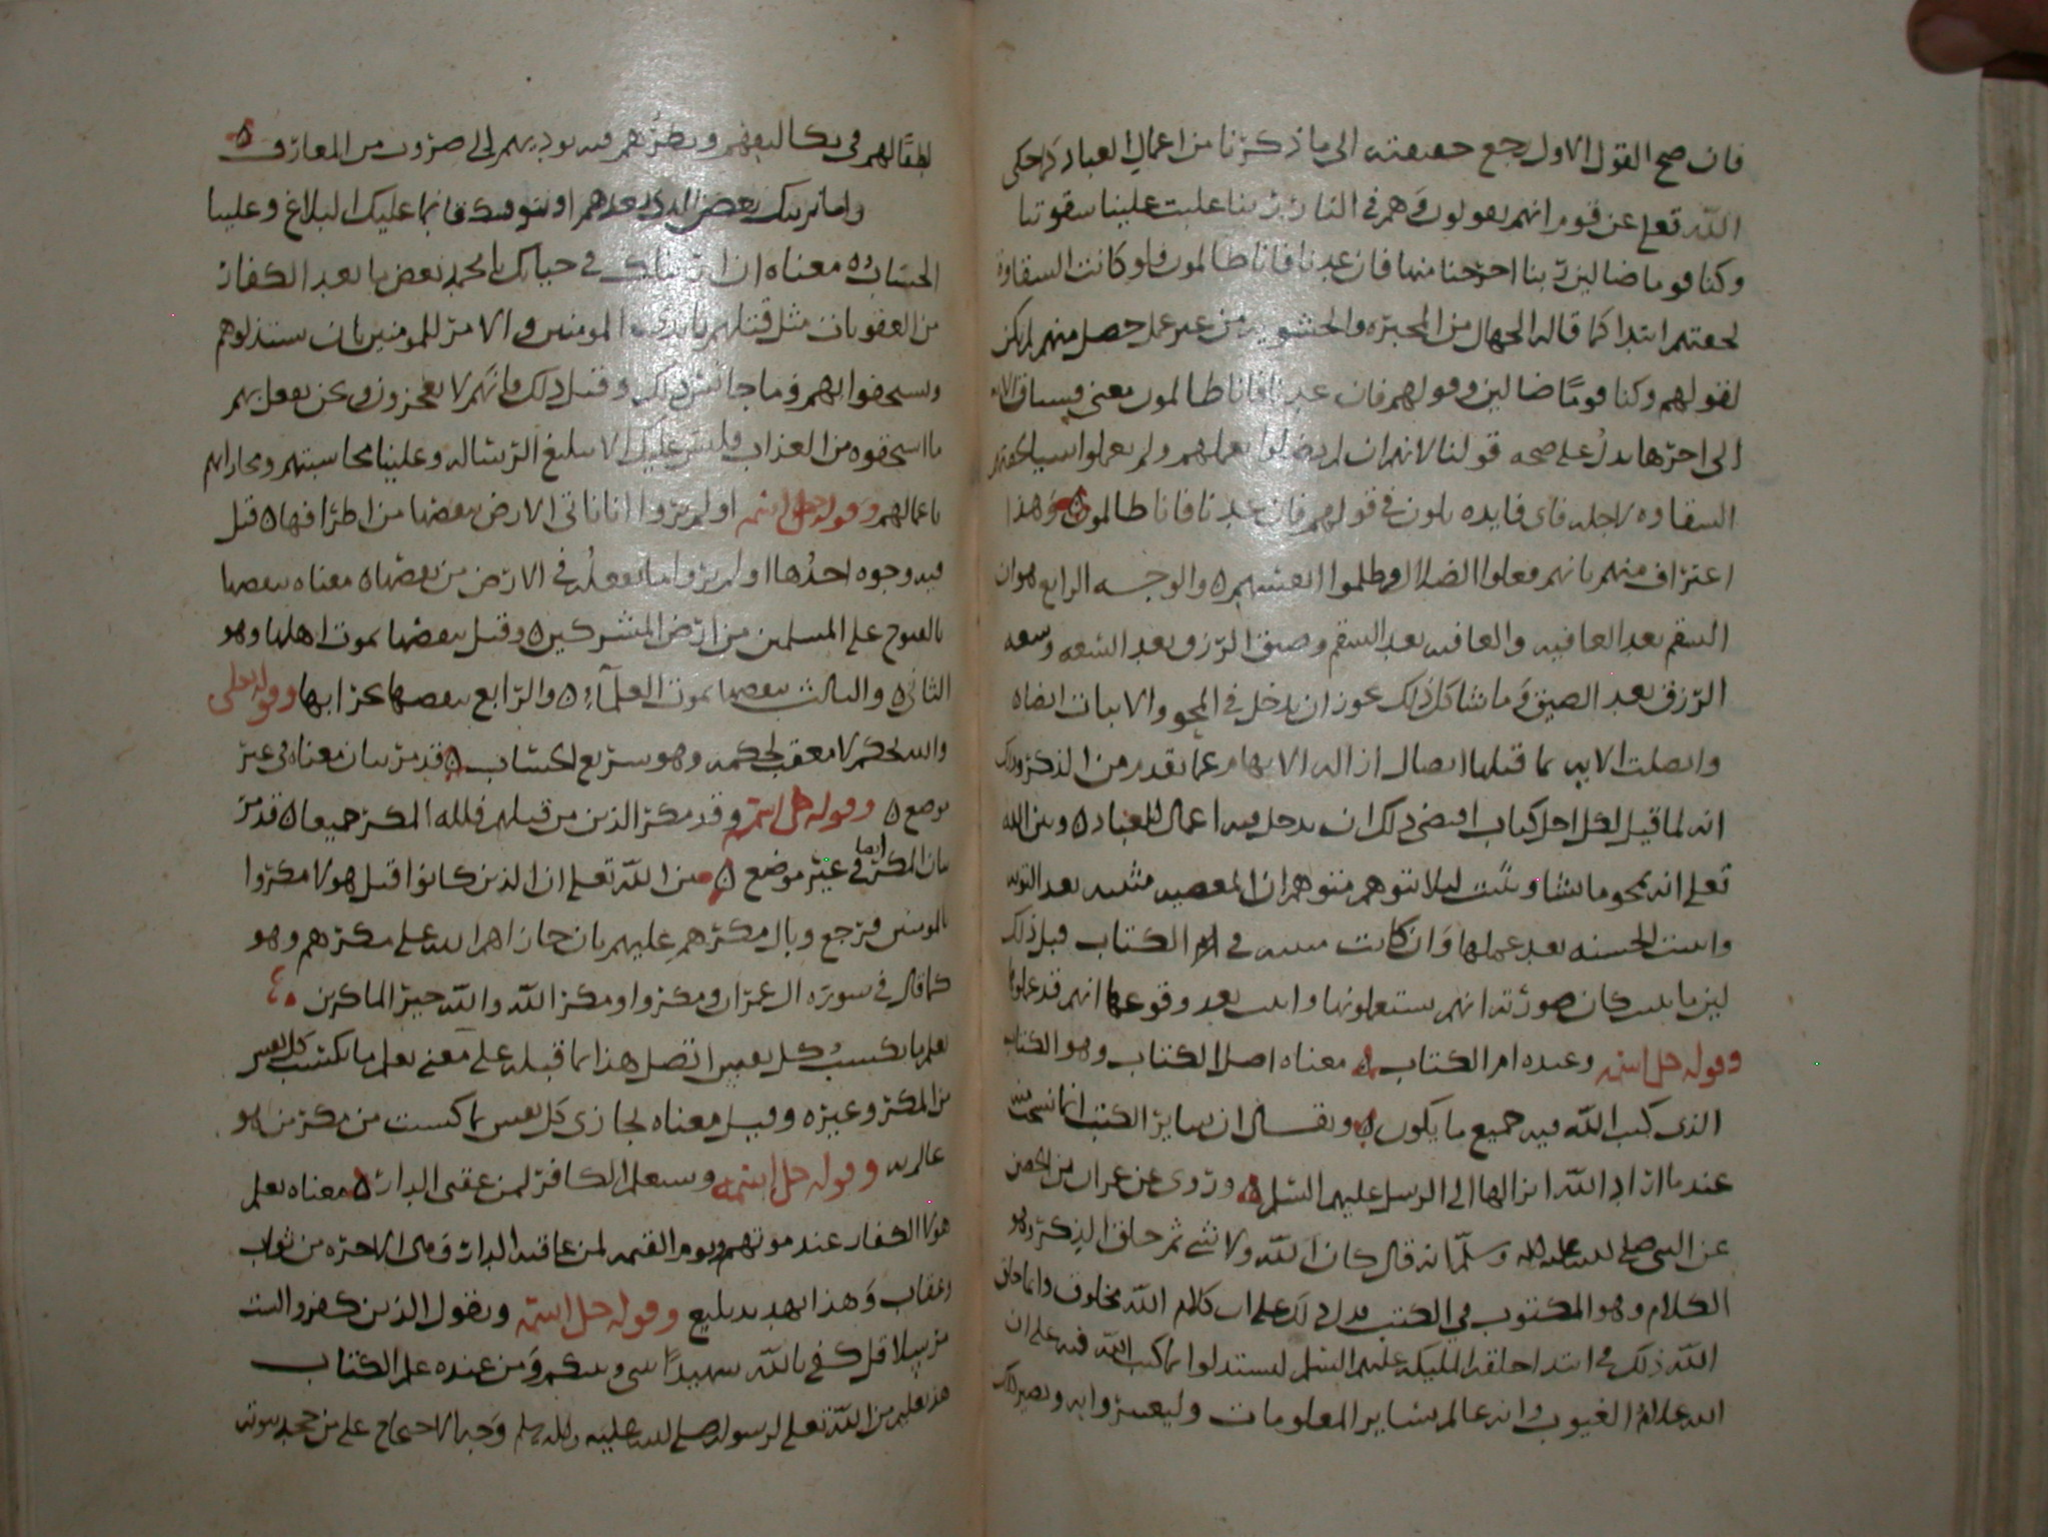 فان صح القول الاول رجع حقيقته الى ما ذكرنا من اعمال العباد كما حكى
الله تعلى عن قوم انهم يقولون وهم في النار ربنا غلبت علينا شقوتنا
وكنا قوما ضالين ربنا اخرجنا منها فان عدنا فانا ظالمون فلو كانت الشقاوة
لحقتهم ابتدا كما قاله الجهال من المجبره والحشويه من غير عمل حصل منهم لم يكن
لقولهم وكنا قومًا ضالين وقولهم فان عدنا فانا ظالمون معنى
الى اخرها يدلُ على صحه قولنا لانهم ان لم يضلوا بعملهم ولم يعملوا سيا لحقتهم
الشقاوه لاجله فاى فايده يكون في قولهم فان عدنا فانا ظالمون وهذا
اعتراف منهم بانهم فعلوا الضلال وظلموا انفسهم ٥ والوجه الرابع هو ان
السقم بعد العافيه والعافيه بعد السقم وضيق الرزق بعد السعه وسعه
الرزق بعد الضيق وما شاكل ذلك يجوز ان يدخل في المحو والاثبات ايضا ٥
واتصلت الايه بما قبلها اتصال ازاله الايهام عما تقدم من الذكر وذلك
انه لما قيل لكل اجل كتاب اقتضى ذلك ان يدخل فيه اعمال العباد ٥ وبين الله
تعلى انه يمحو ما يشا ويثبت ليلا يتوهم متوهم ان المعصيه مثبته بعد التوبه
واثبت الحسنه بعد عملها وان كانت مثبته في ام الكتاب قبل ذلك
لين ما يثبت كان صورته انهم سيعملونها واثبت بعد وقوعها انهم قد عملوها
وقوله جل اسمه وعنده ام الكتاب ٥ معناه اصل الكتاب وهو الكتاب
الذى كتب الله فيه جميع ما يكون ٥ ويقال ان ساير الكتب انما نسخت منه
عند ما اراد الله انزالها الى الرسل عليهم السلم ٥ وروى عن عمران بن الحصين
عن النبي صلى الله عليه واله وسلم انه قال كان الله ولا شي ثم خلق الذكر وهو
الكلام وهو المكتوب في الكتب فدل ذلك على ان كلام الله مخلوق وانما خلق
الله ذلك في ابتدا خلقه الملٮكه عليهم السلم ليستدلوا بما كتب الله فيه على ان
الله علام الغيوب وانه عالم بساير المعلومات وليعتبروا به ويصير ذلك
لطفًا لهم في تكاليفهم ونظرهم فيه يوديهم الى ضروب من المعارف ٥
واما نرينك بعض الذي نعدهم او نتوفينك فانما عليك البلاغ وعلينا
الحساب ٥ معناه ان اريناك في حياتك يا محمد بعض ما نعد الكفار
من العقوبات مثل قتلهم بايدى المومنين والامر للمومنين بان يستذلوهم
ويستخفوا بهم وما جا نحو ذلك وقبل ذلك فانهم لا يعجزون ونحن نفعل بهم
ما استحقوه من العذاب فليس عليك الا تبليغ الرساله وعلينا محاسبتهم ومجازاتهم
باعمالهم وقوله جل اسمه اولم يروا انا ناتى الارض ننقصها من اطرافها ٥ قيل
فيه وجوه احدُها اولم يروا ما نفعلُه في الارض من نقصها ٥ معناه ننقصها
بالفتوح على المسلمين من ارض المشركين ٥ وقيل ننقصها بموت اهلها وهو
الثاني ٥ والثالث ننقصها بموت العلمآءِ ٥ والرابع ننقصها بخرابها وقوله تعلى
والله يحكم لا معقب لحكمه وهو سريع الحساب ٥ قد مر بيان معناه في غير
موضع ٥ وقوله جل اسمه وقد مكر الذين من قبلهم فلله المكر جميعا ٥ قد مر
بيان المكر ايضا في غير موضع ٥ بين الله تعلى ان الذين كانوا قبل هولا مكروا
بالمومنين فرجع وبال مكرهم عليهم بان جازاهم الله على مكرهم وهو
كما قال في سورة ال عمران ومكروا ومكر الله والله خير الماكرين
يعلم ما تكسبُ كل نفس اتصل هذا بما قبله على معنى يعلم ما تكسب كل نفس
من المكر وغيره وقيل معناه يجازى كل نفس بما كسبت من مكر من هو
عالم به وقوله جل اسمه وسيعلم الكافر لمن عقبى الدار ٥ معناه يعلم
هولا الكفار عند موتهم ويوم القيمه لمن عاقبه الدار في الاخره من ثواب
او عقاب وَهذا تهديد بليغ وقوله جل اسمه ويقول الذين كفروا لست
مرسلا قل كفى بالله شهيدًا بينى وبينكم وَمن عنده علم الكتاب
هذا تعليم من الله تعلى لرسوله صلى الله عليه واله وسلم وَجه الاحتجاج على من جحد نبوته